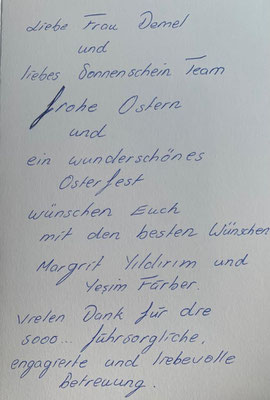 Liebe Frau Demel
und
liebes Sonnenschein Team
frohe Ostern
und
ein wunderschönes
Osterfest
wünschen Euch
mit den besten Wünschen
Margrit Yildirim und
Yesim Färber.
Vielen Dank für die
sooo... führsorgliche,
engagierte und liebevolle
Betreuung.